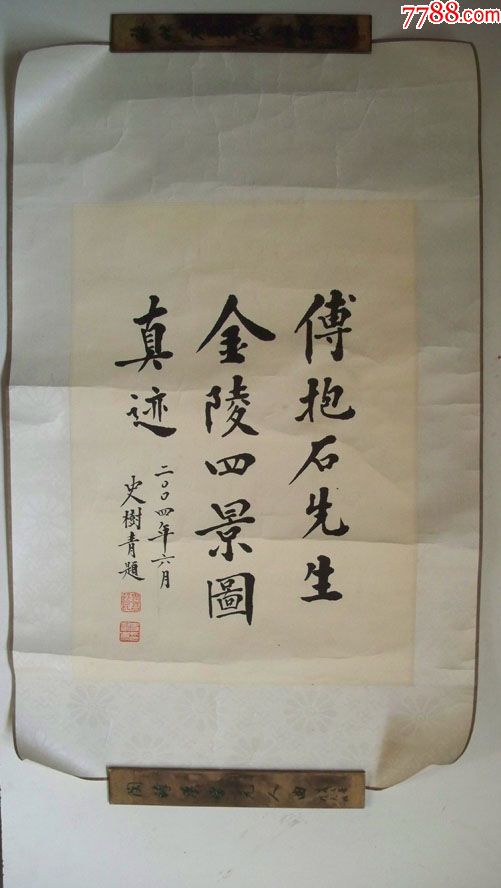 7788.com
傅抱石先生
金陵四景圖
真迹
二〇〇四年六月
史樹青題